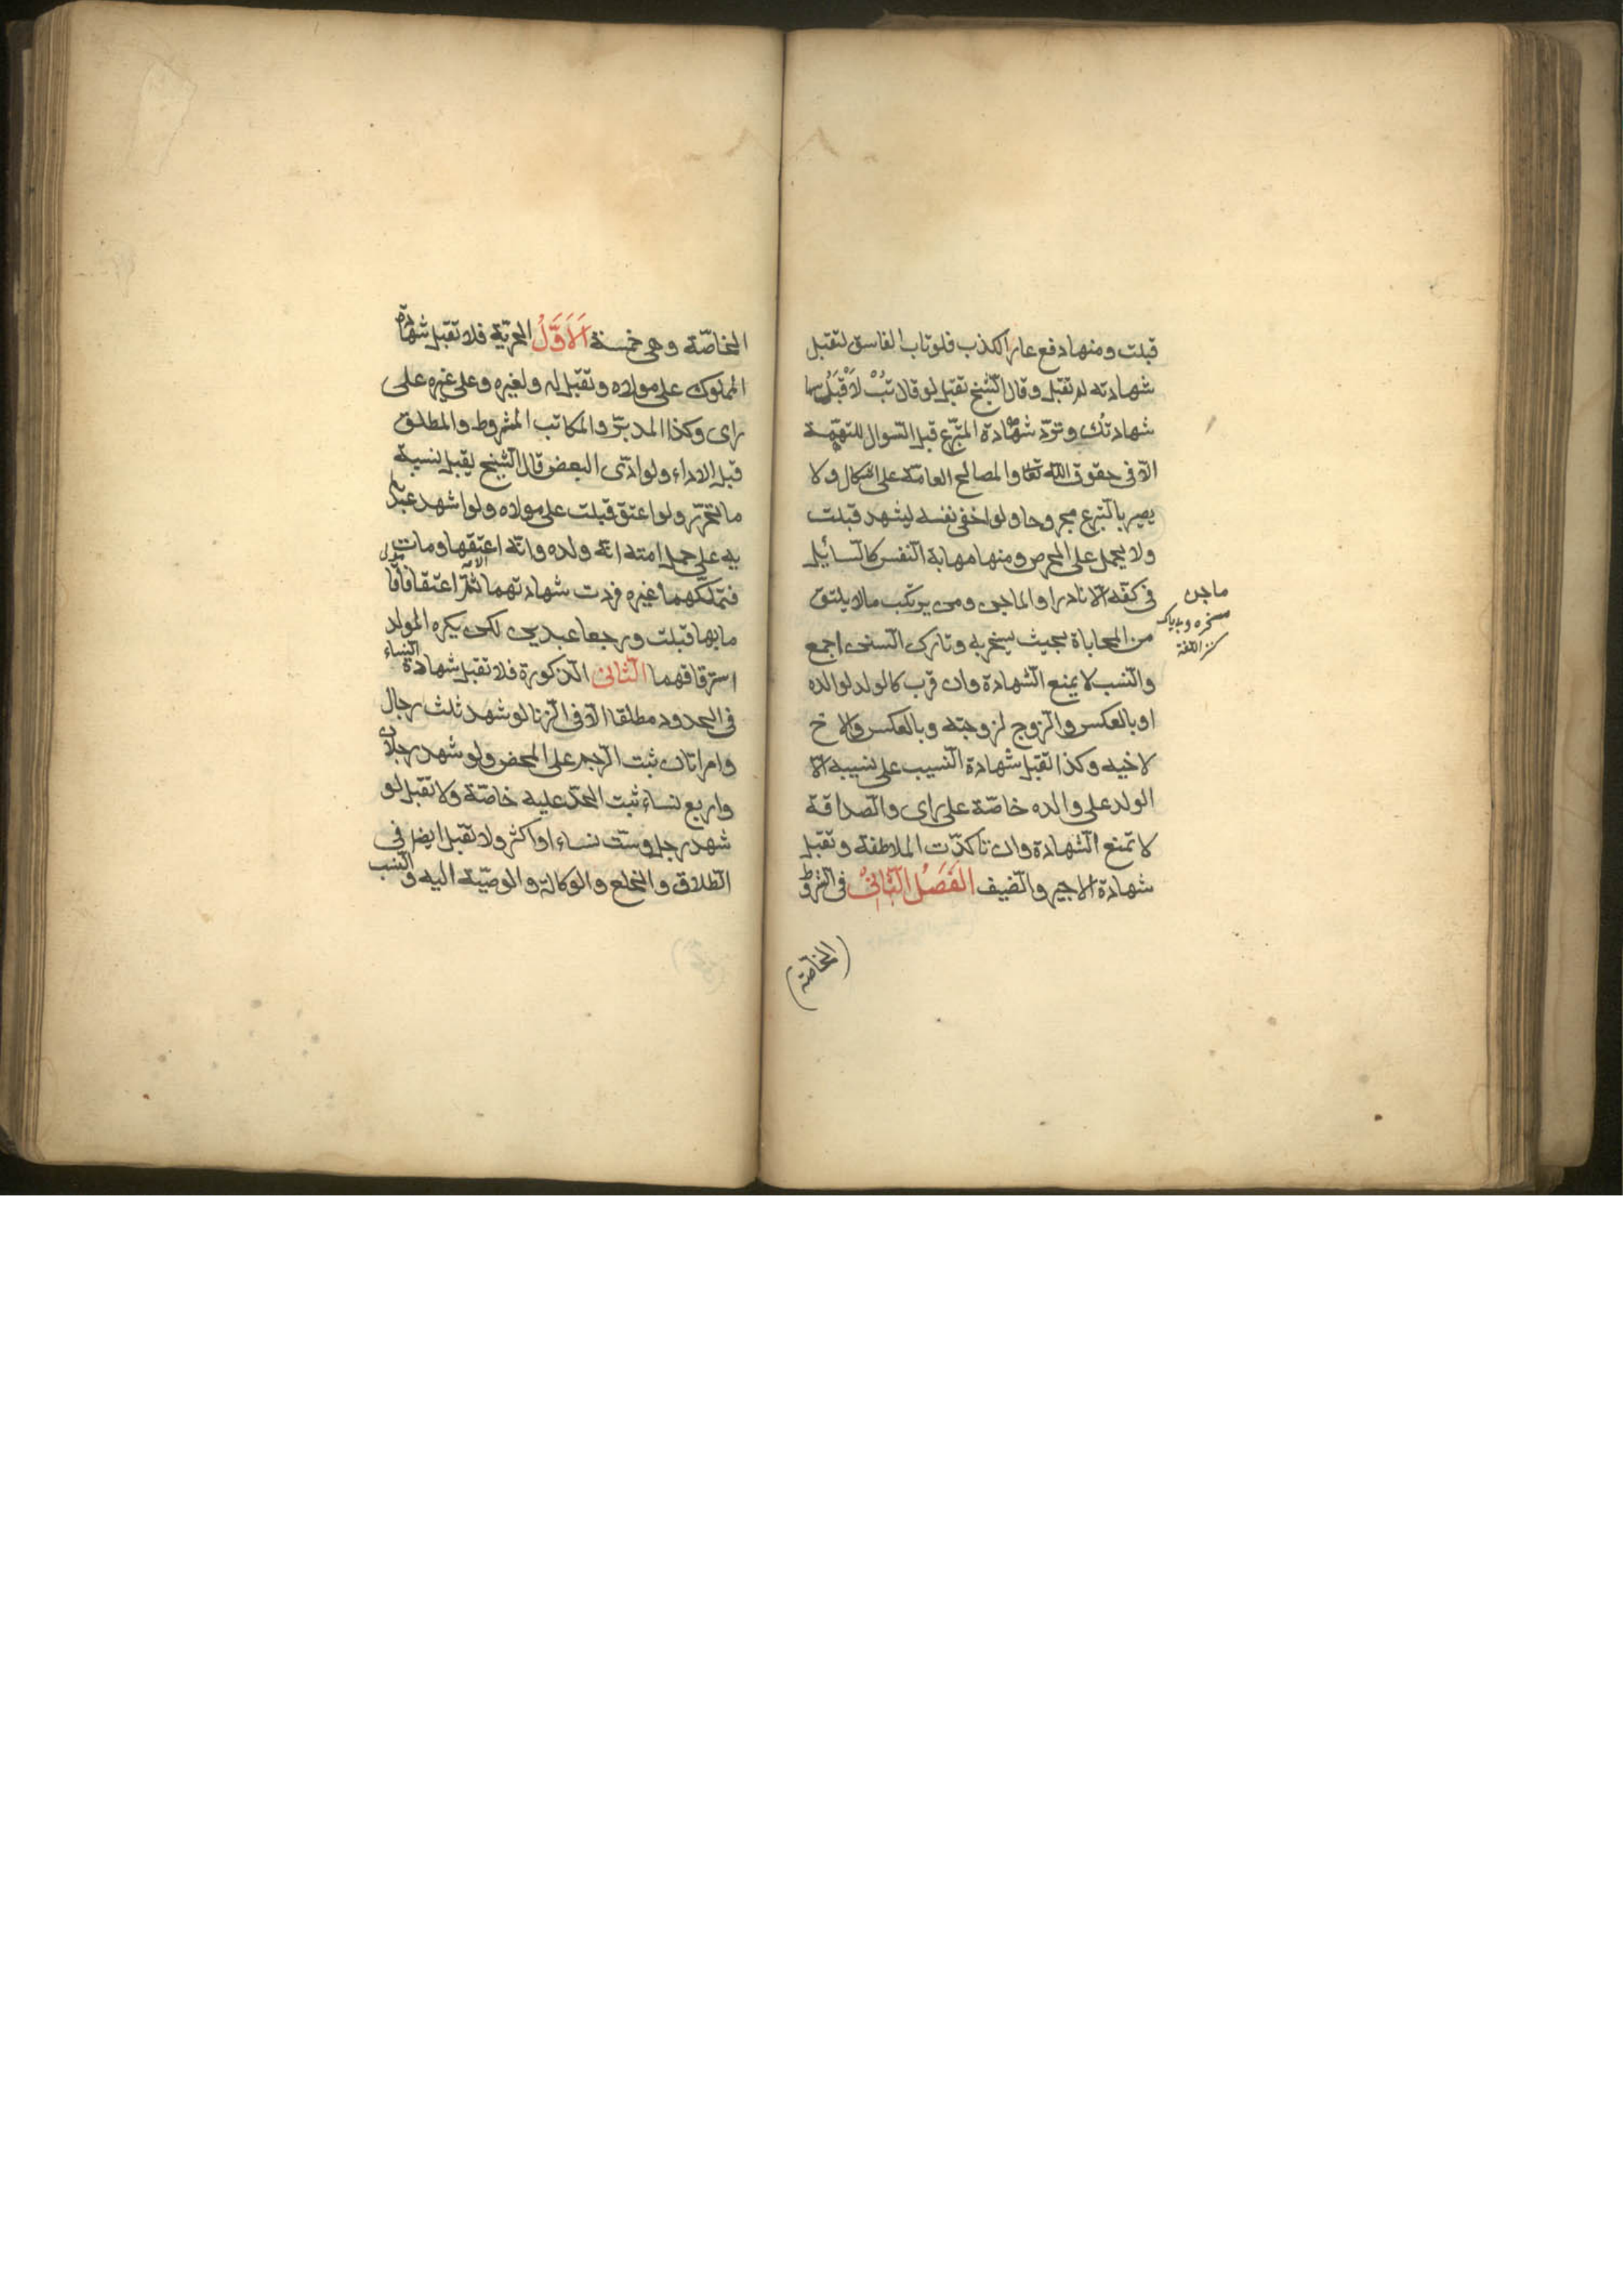 قبلت ومنها دفع عار الكذب فلوتاب الفاسق لتقبل
شهادته لم تقبل وقال الشيخ تقبل لو قال تُبْ لأقبَلُ
شهادتك وتردّ شهادة المتبرّع قبل السّوال للتهمة
الّا فى حقوق الله تعا والمصالح العامّة على اشكال ولا
يصير بالتبرع مجروحا ولو اخفى نفسه ليشهد قبلت
ولا يحمل على الحرص ومنها مهابة النفس كالسّائل
فى كفّه الّا نادرا والماجن ومن يرتكب مالا يليق
من المحاباة بحيث يسخر به وتارك السنن اجمع
والنّسب لا يمنع الشهادة وان قرب كالولد لوالده
او بالعكس والزوج لزوجته وبالعكس والاخ
لاخيه وكذا تقبل شهادة النسيب على نسيبه الّا
الولد على والده خاصّة على راى والصداقة
لا تمنع الشهادة وان تاكدّت الملاطفة وتقبل
شهادة الاجير والضيف الفَصْلُ الثّانِىْ فى الشروط
(الخاصّة)
ماجن
مسخره وبى باك
كنز اللغة
الخاصّة وهى خمسة اَلْاَوَّلُ الحريّة فلا تقبل شهادة
المملوك على مولاه وتقبل له ولغيره وعلى غيره على
راى وكذا المدبّر والمكاتب المشروط والمطلق
قبل الاداء ولو ادّى البعض قال الشيخ يقبل بنسبة
ما تحرّر ولو اعتق قبلت على مولاه ولو اشهد عبد
يه على حمل امته انه ولده وانه اعتقها ومات
فتملّكهما غيره فردت شهادتهما ثمّ اعتقا فاقا
ما بها قبلت ورجعا عبدين لكن يكره المولد
استرقاقهما الثّانى الذكورة فلا تقبل شهادة النساء
فى الحدود مطلقا الّا فى الزنا لو شهد ثلث رجال
وامراتان ثبت الرجم على المحصن ولو شهد رجلان
واربع نساء ثبت الحدّ عليه خاصّة ولا تقبل لو
شهد رجل وستّ نساء او اكثر ولا تقبل ايضا فى
الطلاق والخلع والوكالة والوصيّة اليه والنسب